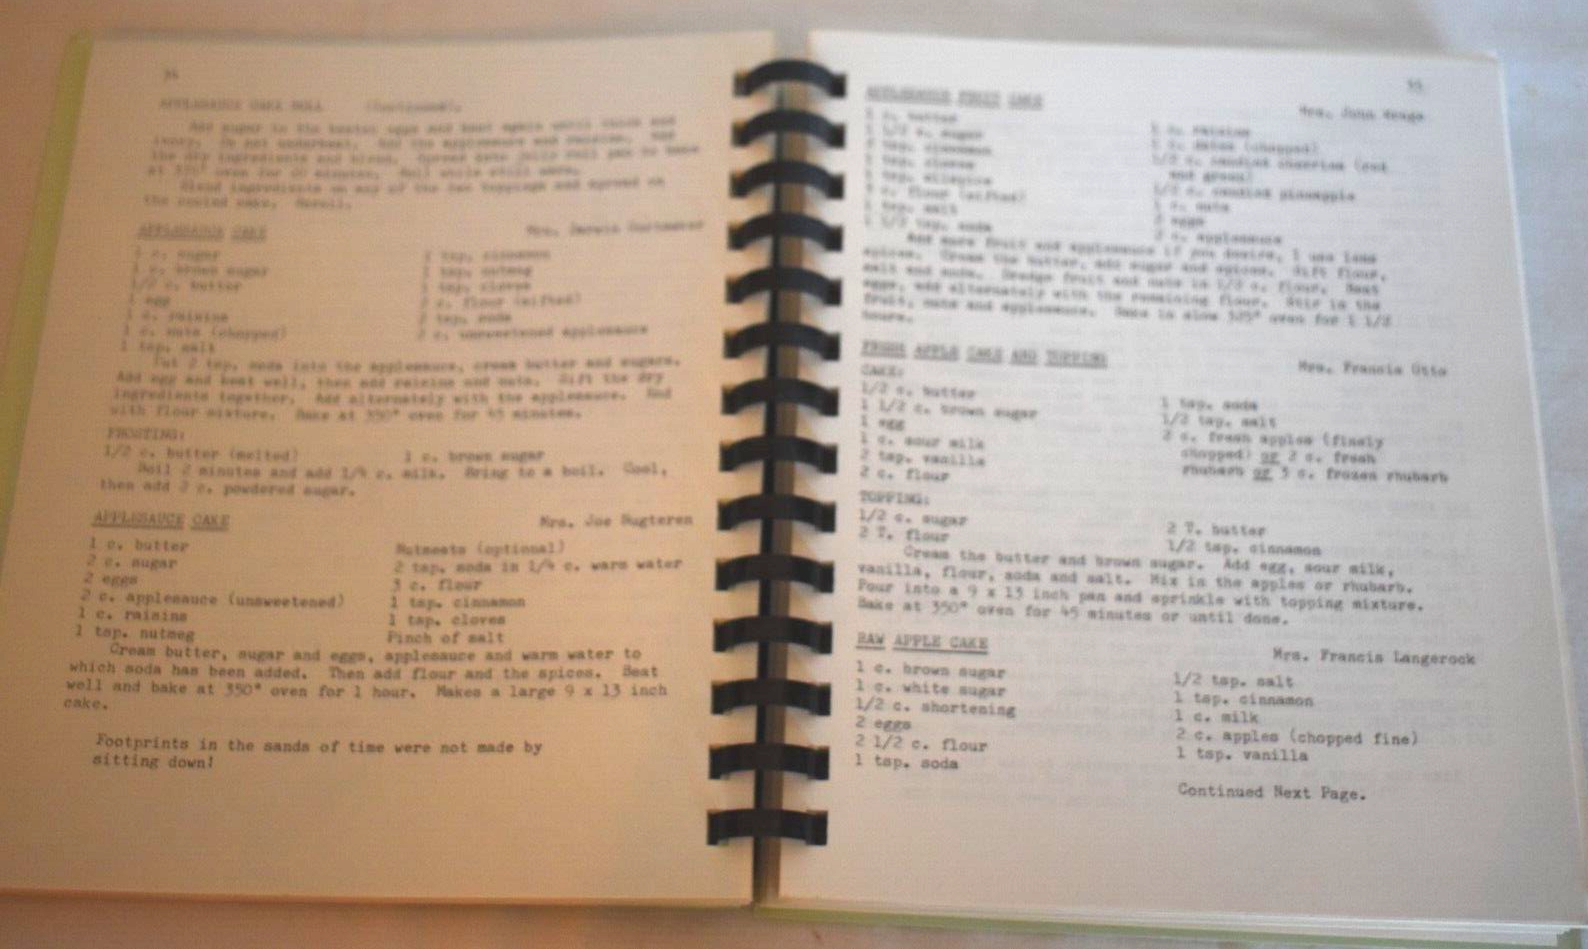 APPLESAUCE CAKE ROLL (Continued).
Add sugar to the beaten eggs and beat again until thick and
Do not underbeat. Add the applesauce and
the dry ingredients and blend. Spread into jelly roll pan to bake
at oven for 20 minutes. Roll while still warm.
Blend ingredients on any of the two toppings and spread on
the cooled cake. Reroll.
APPLESAUCE CAKE Mrs.
1 c. sugar
1 c. brown sugar
1/2 c. butter
1 egg
1 c. raisins
1 c. nuts (chopped)
1 tsp. salt
1 tsp. cinnamon
1 tsp. nutmeg
1 tsp. cloves
c. flour (sifted)
2 tsp. soda
2 c. unsweetened applesauce
Put 2 tsp. soda into the applesauce, cream butter and sugars.
Add egg and beat well, then add raisins and nuts. Sift the dry
ingredients together. Add alternately with the applesauce. End
with flour mixture. Bake at 350° oven for 45 minutes.
FROSTING:
1/2 c. butter (melted) 1 c. brown sugar
Boil 2 minutes and add 1/4 c. milk. Bring to a boil. Cool,
then add 2 c. powdered sugar.
APPLESAUCE CAKE Mrs. Joe Sugteren
1 c. butter
2 c. sugar
2 eggs
2 c. applesauce (unsweetened)
1 c. raisins
1 tsp. nutmeg
Nutmeats (optional)
2 tsp. soda in 1/4 c. warm water
3 c. flour
1 tsp. cinnamon
1 tsp. cloves
Pinch of salt
Cream butter, sugar and eggs, applesauce and warm water to
which soda has been added. Then add flour and the spices. Beat
well and bake at 350° oven for 1 hour. Makes a large 9 x 13 inch
cake.
Footprints in the sands of time were not made by
sitting down!
55
APPLESAUCE FRUIT CAKE Mrs. John
1 c. butter
1 1/2 c. sugar
tsp. cinnamon
1 tsp. cloves
1 tsp. allspice
c. flour (sifted)
1 tsp. salt
1 1/2 tsp. soda
1 c. raisins
1 c. dates (chopped)
1/2 c. candied cherries (red
and green)
1/2 c. candied pineapple
1 c. nuts
2 eggs
2 c. applesauce
Add more fruit and applesauce if you desire, I use less
spices. Cream the butter, add sugar and spices. Sift flour,
salt and soda. Dredge fruit and nuts in 1/2 c. flour. Beat
eggs, add alternately with the remaining flour. Stir in the
fruit, nuts and applesauce. Bake in slow 325° oven for 1 1/2
hours.
FRESH APPLE CAKE AND TOPPING Mrs. Francis Otto
CAKE:
1/2 c. butter
1 1/2 c. brown sugar
1 egg
1 c. sour milk
2 tsp. vanilla
2 c. flour
1 tsp. soda
1/2 tsp. salt
2 c. fresh apples (finely
chopped) or 2 c. fresh
rhubarb or 3 c. frozen rhubarb
TOPPING:
1/2 c. sugar
2 T. flour
2 T. butter
1/2 tsp. cinnamon
Cream the butter and brown sugar. Add egg, sour milk,
vanilla, flour, soda and salt. Mix in the apples or rhubarb.
Pour into a 9 x 13 inch pan and sprinkle with topping mixture.
Bake at 350° oven for 45 minutes or until done.
RAW APPLE CAKE Mrs. Francis Langerock
1 c. brown sugar
1 c. white sugar
1/2 c. shortening
2 eggs
2 1/2 c. flour
1 tsp. soda
1/2 tsp. salt
1 tsp. cinnamon
1 c. milk
2 c. apples (chopped fine)
1 tsp. vanilla
Continued Next Page.